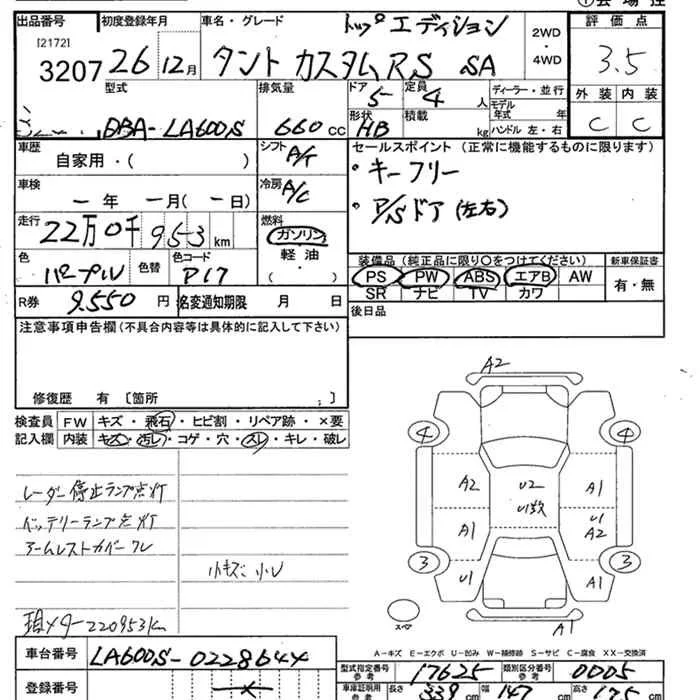 ①会場控
出品番号 初度登録年月 車名・グレード トップエディション 2WD・4WD 評価点
[2172] 3207 26 12月 タント カスタムRS SA 3.5
型式 排気量 ドア 5 定員 4人 ディーラー・並行 外装 内装
DBA-LA600S 660cc 形状 HB 積載 kg モデル年式 年式 ハンドル 左・右 C C
車歴 自家用・( ) シフト A/T セールスポイント (正常に機能するものに限ります)
車検 ー年 ー月(ー日) 冷房 A/C ・キーフリー
走行 22万0千953km 燃料 ガソリン・軽油・( ) ・P/Sドア(左右)
色 パープル 色替 色コード P17 装備品(純正品に限り○をつけてください) 新車保証書
PS PW ABS エアB AW 有・無
SR ナビ TV カワ
R券 9.550円 名変通知期限 月 日 後日品
注意事項申告欄(不具合内容等は具体的に記入して下さい)
修復歴 有〔箇所 ; 〕
検査員 FW キズ・飛石・ヒビ割・リペア跡・×要
記入欄 内装 キズ・汚レ・コゲ・穴・スレ・キレ・破レ
レーダー停止ランプ点灯
バッテリーランプ点灯
アームレストカバーワレ
小キズ小U
現メター220953km
A2
4 4
A2 U2 U1数 A1
A1 U1 A2
3 3
U1 A1
スペア A1
A-キズ E-エクボ U-凹み W-補修跡 S-サビ C-腐食 XX-交換済
車台番号 LA600S-0228644 型式指定番号 参考 17625 類別区分番号 参考 0005
登録番号 車庫証明用 参考 長さ 339 幅 147 高さ 175
cm